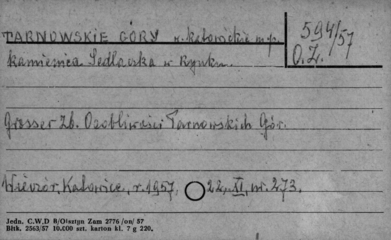 TARNOWSKIE GÓRY w. katowickie m.p. 594/57
kamienica Sedlaczka w Rynku. O.Z.
Grosser Zb. Osobliwości Tarnowskich Gór.
Wieczór, Katowice, r. 1957, 22, XI, nr. 273.
Jedn. C.W.D 8/Olsztyn Zam 2776 /on/ 57
Błtk. 2563/57 10.000 szt. karton kl. 7 g 220.